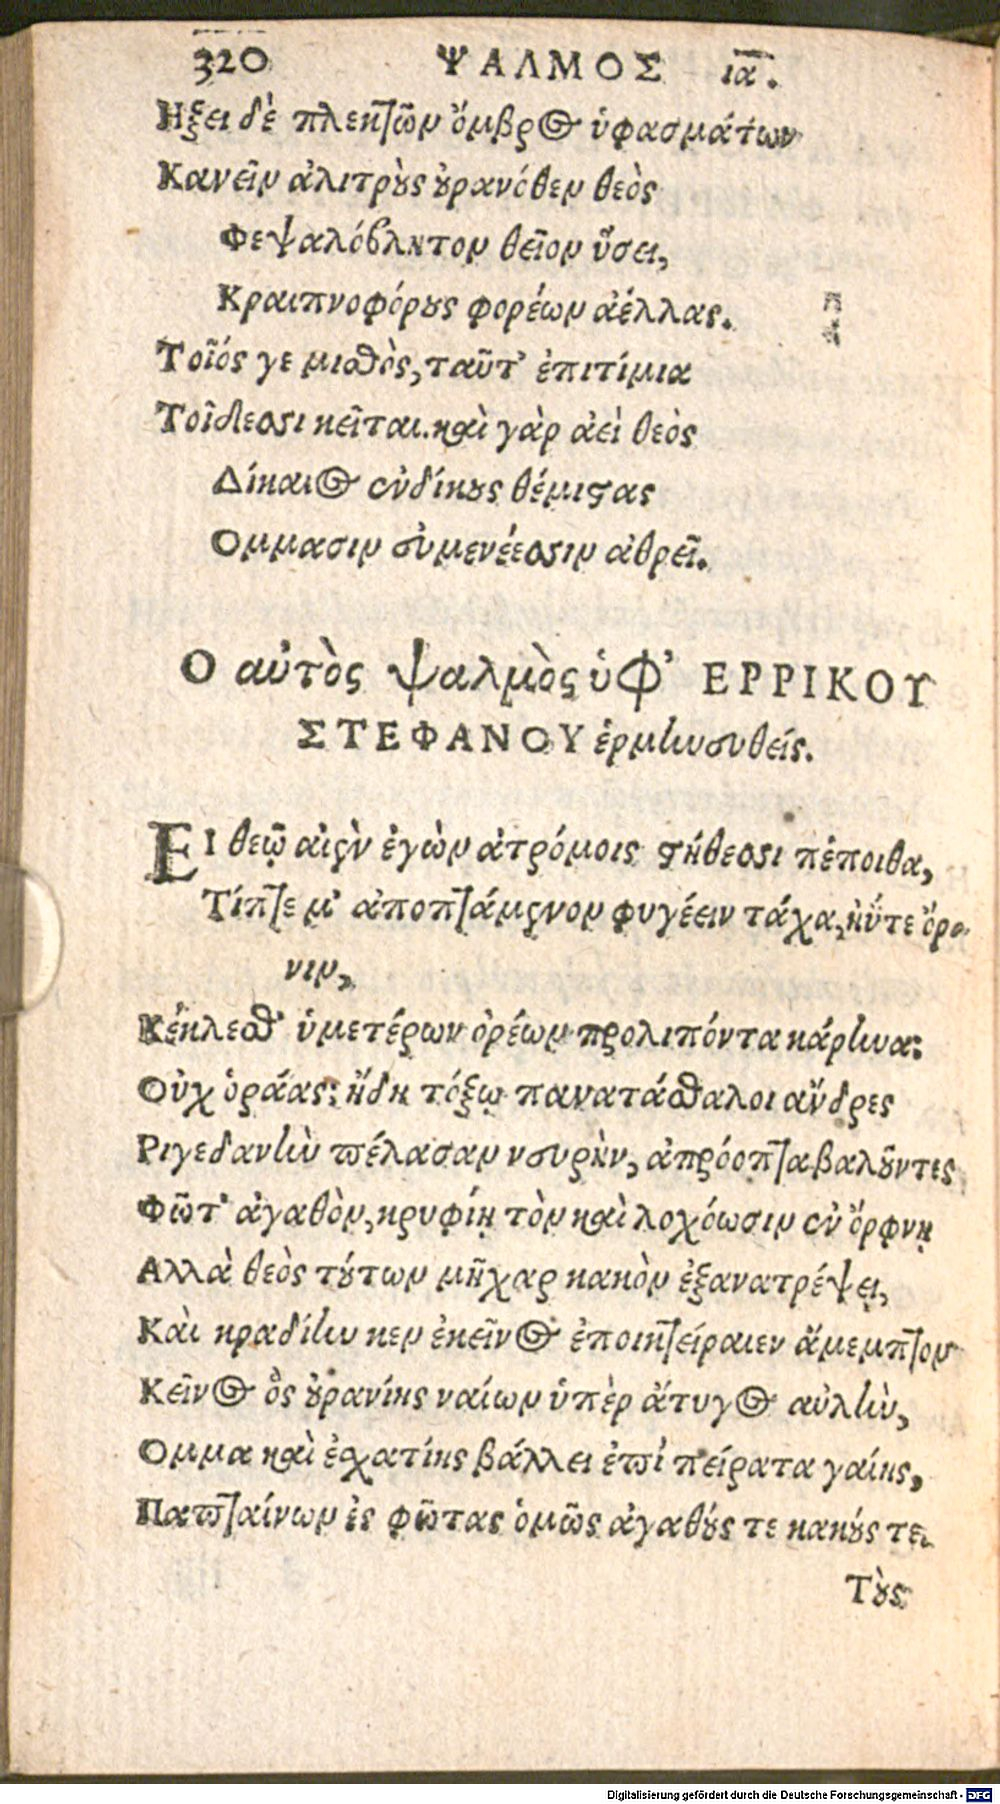 320 ΨΑΛΜΟΣ ια.
Ηξει δὲ πλεκτῶν ὄμβρος ὑφασμάτων
Κανεῖν ἀλιτροὺς οὐρανόθεν θεὸς
Φεψαλόβλητον θεῖον ὕσει,
Κραιπνοφόρους φορέων ἀέλλας.
Τοῖός γε μισθὸς, ταῦτ' ἐπιτίμια
Τοῖσδεσσι κεῖται. καὶ γὰρ ἀεὶ θεὸς
Δίκαιος ἐνδίκους θέμιστας
Ομμασιν εὐμενέεσσιν ἀθρεῖ.
Ο αὐτὸς ψαλμὸς ὑφ' ΕΡΡΙΚΟΥ
ΣΤΕΦΑΝΟΥ ἑρμηνευθείς.
ΕΙ θεῷ αἰὲν ἐγὼν ἀτρόμοις στήθεσσι πέποιθα,
Τίπτε μ' ἀποπτάμενον φυγέειν τάχα, ἠΰτε ὄρ-
νιν,
Κέκλεσθ' ὑμετέρων ὀρέων προλιπόντα κάρηνα:
Οὐχ ὁράας; ἤδη τόξῳ πανατάσθαλοι ἄνδρες
Ριγεδανὴν πέλασαν νευρὴν, ἀπρόοπτα βαλοῦντες
Φῶτ' ἀγαθὸν, κρυφίῃ τὸν καὶ λοχόωσιν ἐν ὄρφνῃ
Αλλὰ θεὸς τούτων μῆχαρ κακὸν ἐξανατρέψει,
Καὶ κραδίην κεν ἐκεῖνος ἐποικτείραιεν ἄμεμπτον
Κεῖνος ὃς οὐρανίης ναίων ὑπὲρ ἄντυγος αὐλὴν,
Ομμα καὶ ἐσχατίης βάλλει ἐπὶ πείρατα γαίης,
Παπταίνων ἐς φῶτας ὁμῶς ἀγαθούς τε κακούς τε.
Τοὺς
Digitalisierung gefördert durch die Deutsche Forschungsgemeinschaft - DFG